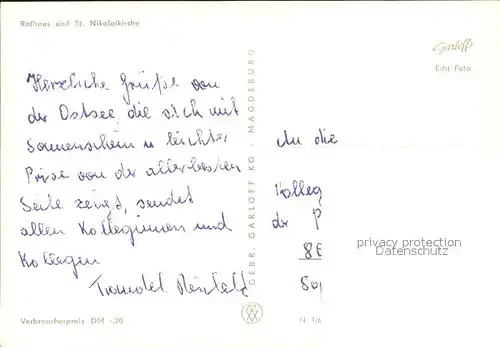 Rathaus und St. Nikolaikirche
Garloff
Echt Foto
Herzliche Grüße von
der Ostsee, die sich mit
Sonnenschein u leichter
Prise von der allerbesten
Seite zeigt, sendet
allen Kolleginnen und
Kollegen
GEBR. GARLOFF KG · MAGDEBURG
An die
Kolleg
der P
privacy protection
Datenschutz
Verbraucherpreis DM -,20
N 1/6